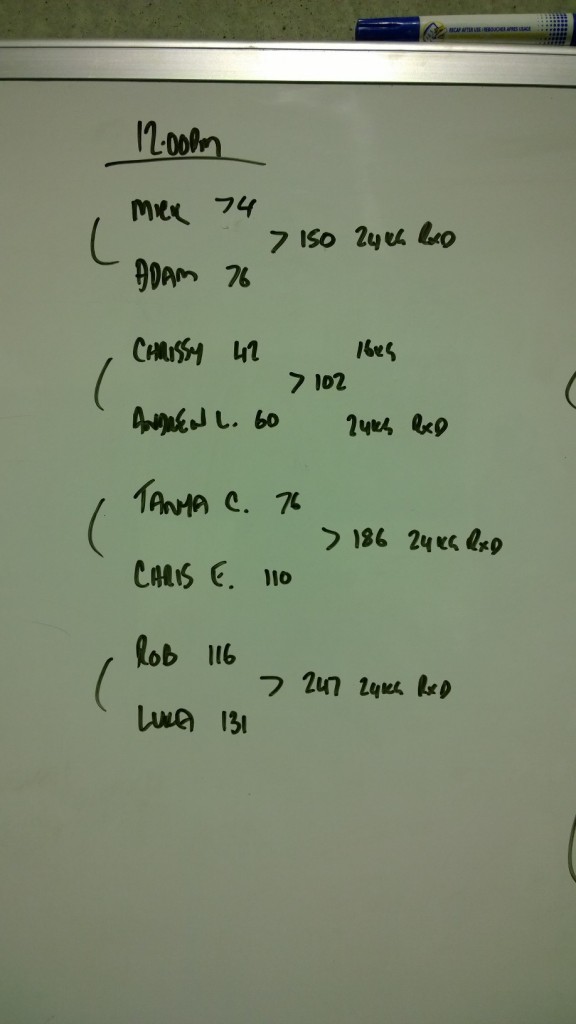 12.00PM
MICK 74
> 150 24KG RXD
ADAM 76
CHRISSY 42 16KG
> 102
ANDREW L. 60 24KG RXD
TANYA C. 76
> 186 24KG RXD
CHRIS E. 110
ROB 116
> 247 24KG RXD
LUKA 131